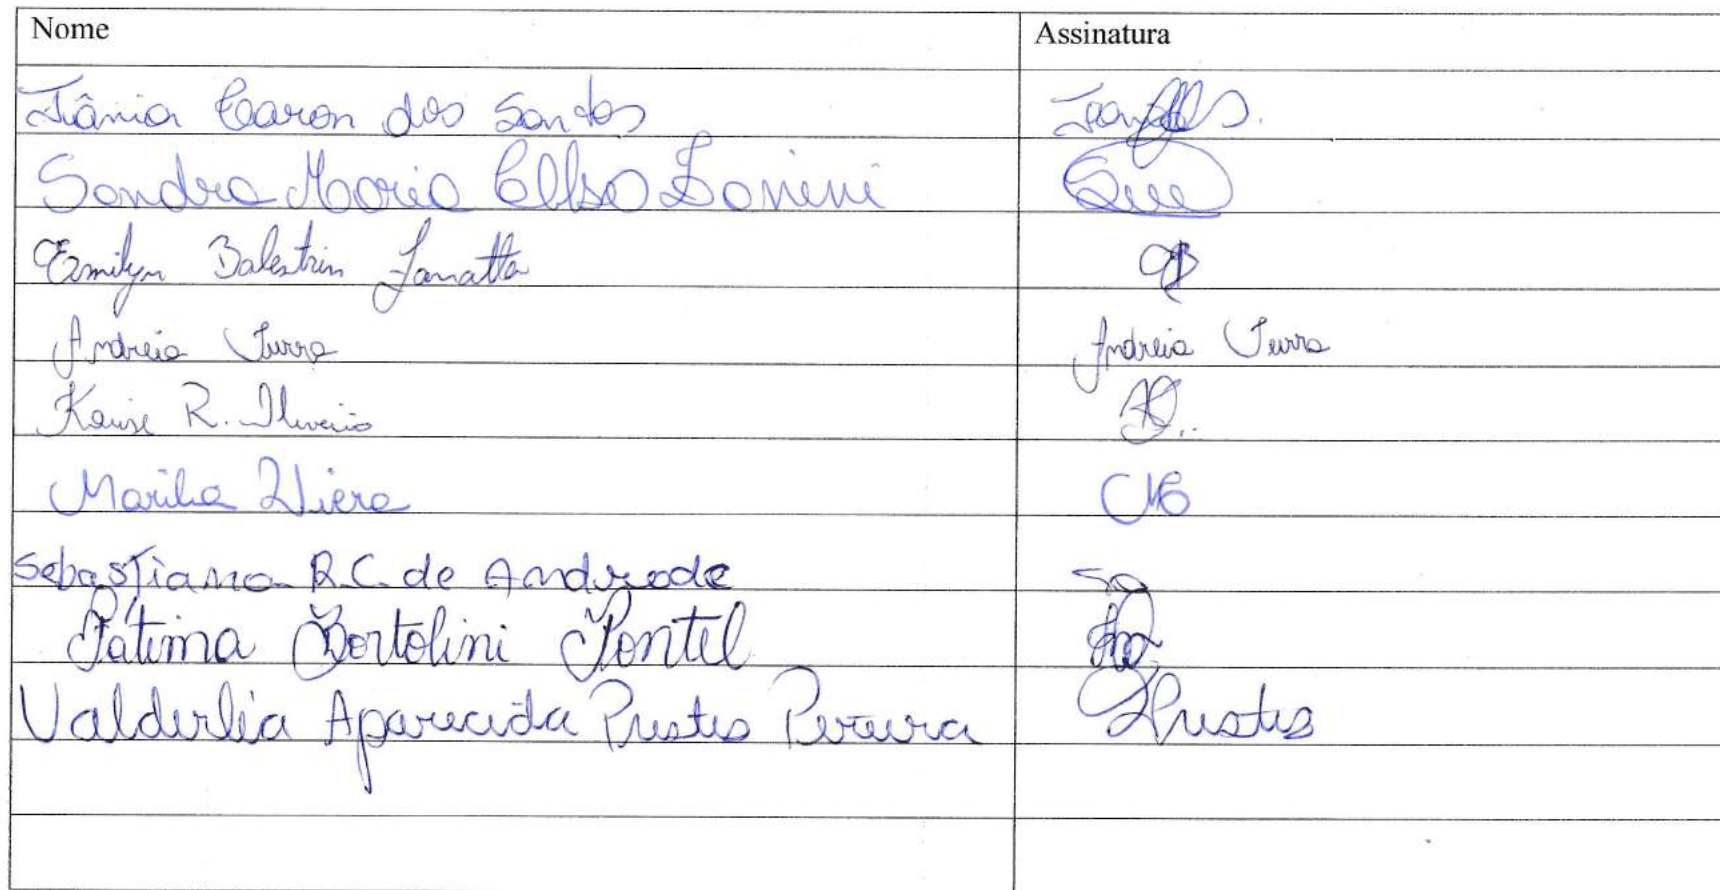 Nome Assinatura
Tânia Caron dos Santos
Sandra Maria Zanini
Emilyn Balestrin Zanatta
Andreia Turra Andreia Turra
R. Oliveira
Marilia Viera
Sebastiana R.C. de Andrade
Fátima Bortolini Pontel
Valderlia Aparecida Prestes Pereira Prestes